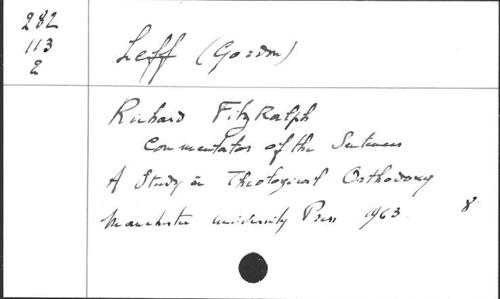 282
113
2
Leff (Gordon)
Richard FitzRalph
Commentator of the Sentences
A Study in Theological Orthodoxy
Manchester University Press 1963. 8